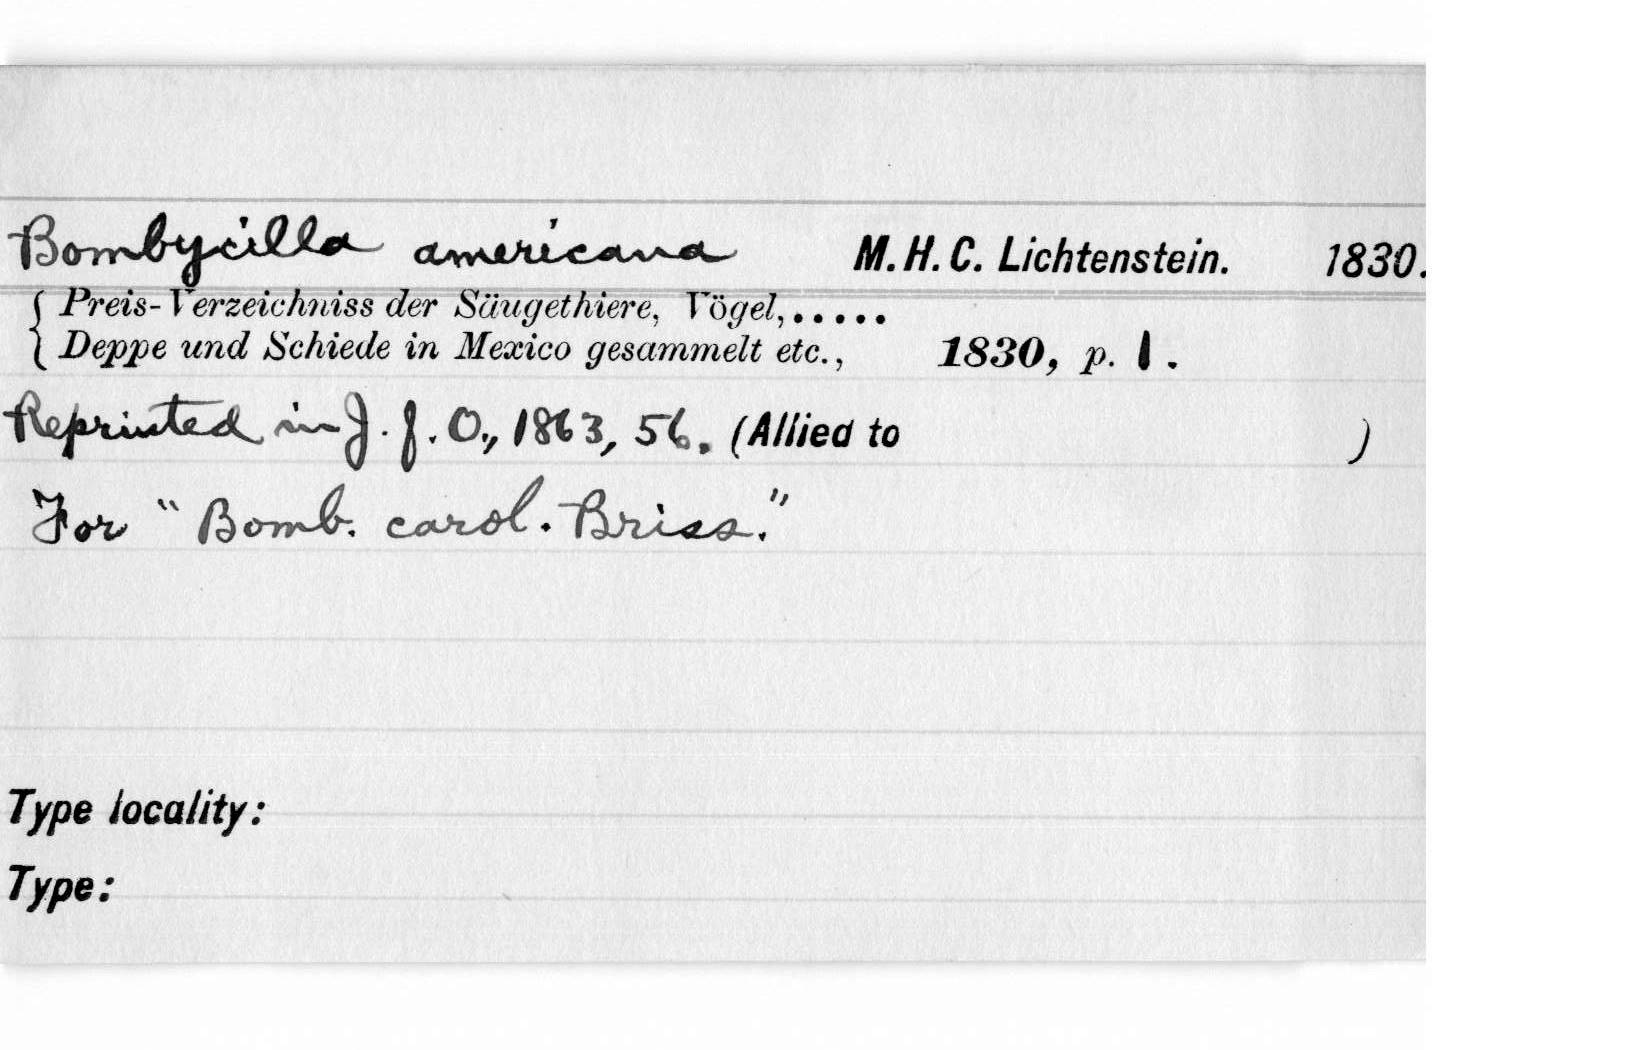 Bombycilla americana M. H. C. Lichtenstein. 1830.
{ Preis-Verzeichniss der Säugethiere, Vögel,.....
{ Deppe und Schiede in Mexico gesammelt etc., 1830, p. 1.
Reprinted in J. f. O., 1863, 56. (Allied to )
For "Bomb. carol. Briss."
Type locality:
Type: